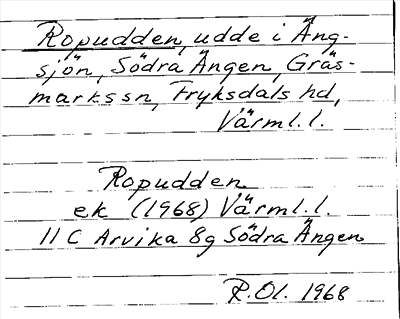 Ropudden, udde i Äng-
sjön, Södra Ängen, Gräs-
markssn, Fryksdals hd,
Värml. l.
Ropudden
ek (1968) Värml. l.
11 C Arvika 8g Södra Ängen
R. Ol. 1968